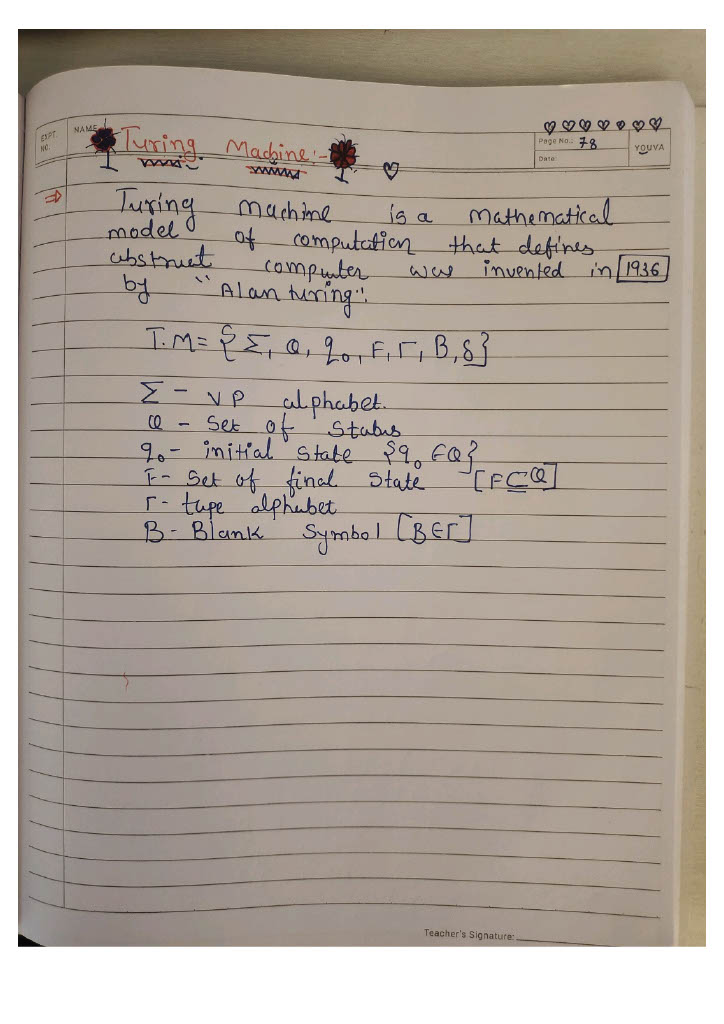 EXPT. NO.
NAME
Page No.: 78
Date:
YOUVA
Turing Machine:-
⇒ Turing machine is a mathematical
model of computation that defines
abstruct computer was invented in 1936
by "Alan turing".
T.M = {Σ, Q, q₀, F, Γ, B, δ}
Σ - VP alphabet.
Q - Set of Status
q₀ - initial State {q₀ ∈ Q}
F - Set of final State [F ⊆ Q]
Γ - tape alphabet
B - Blank Symbol [B ∈ Γ]
Teacher's Signature: